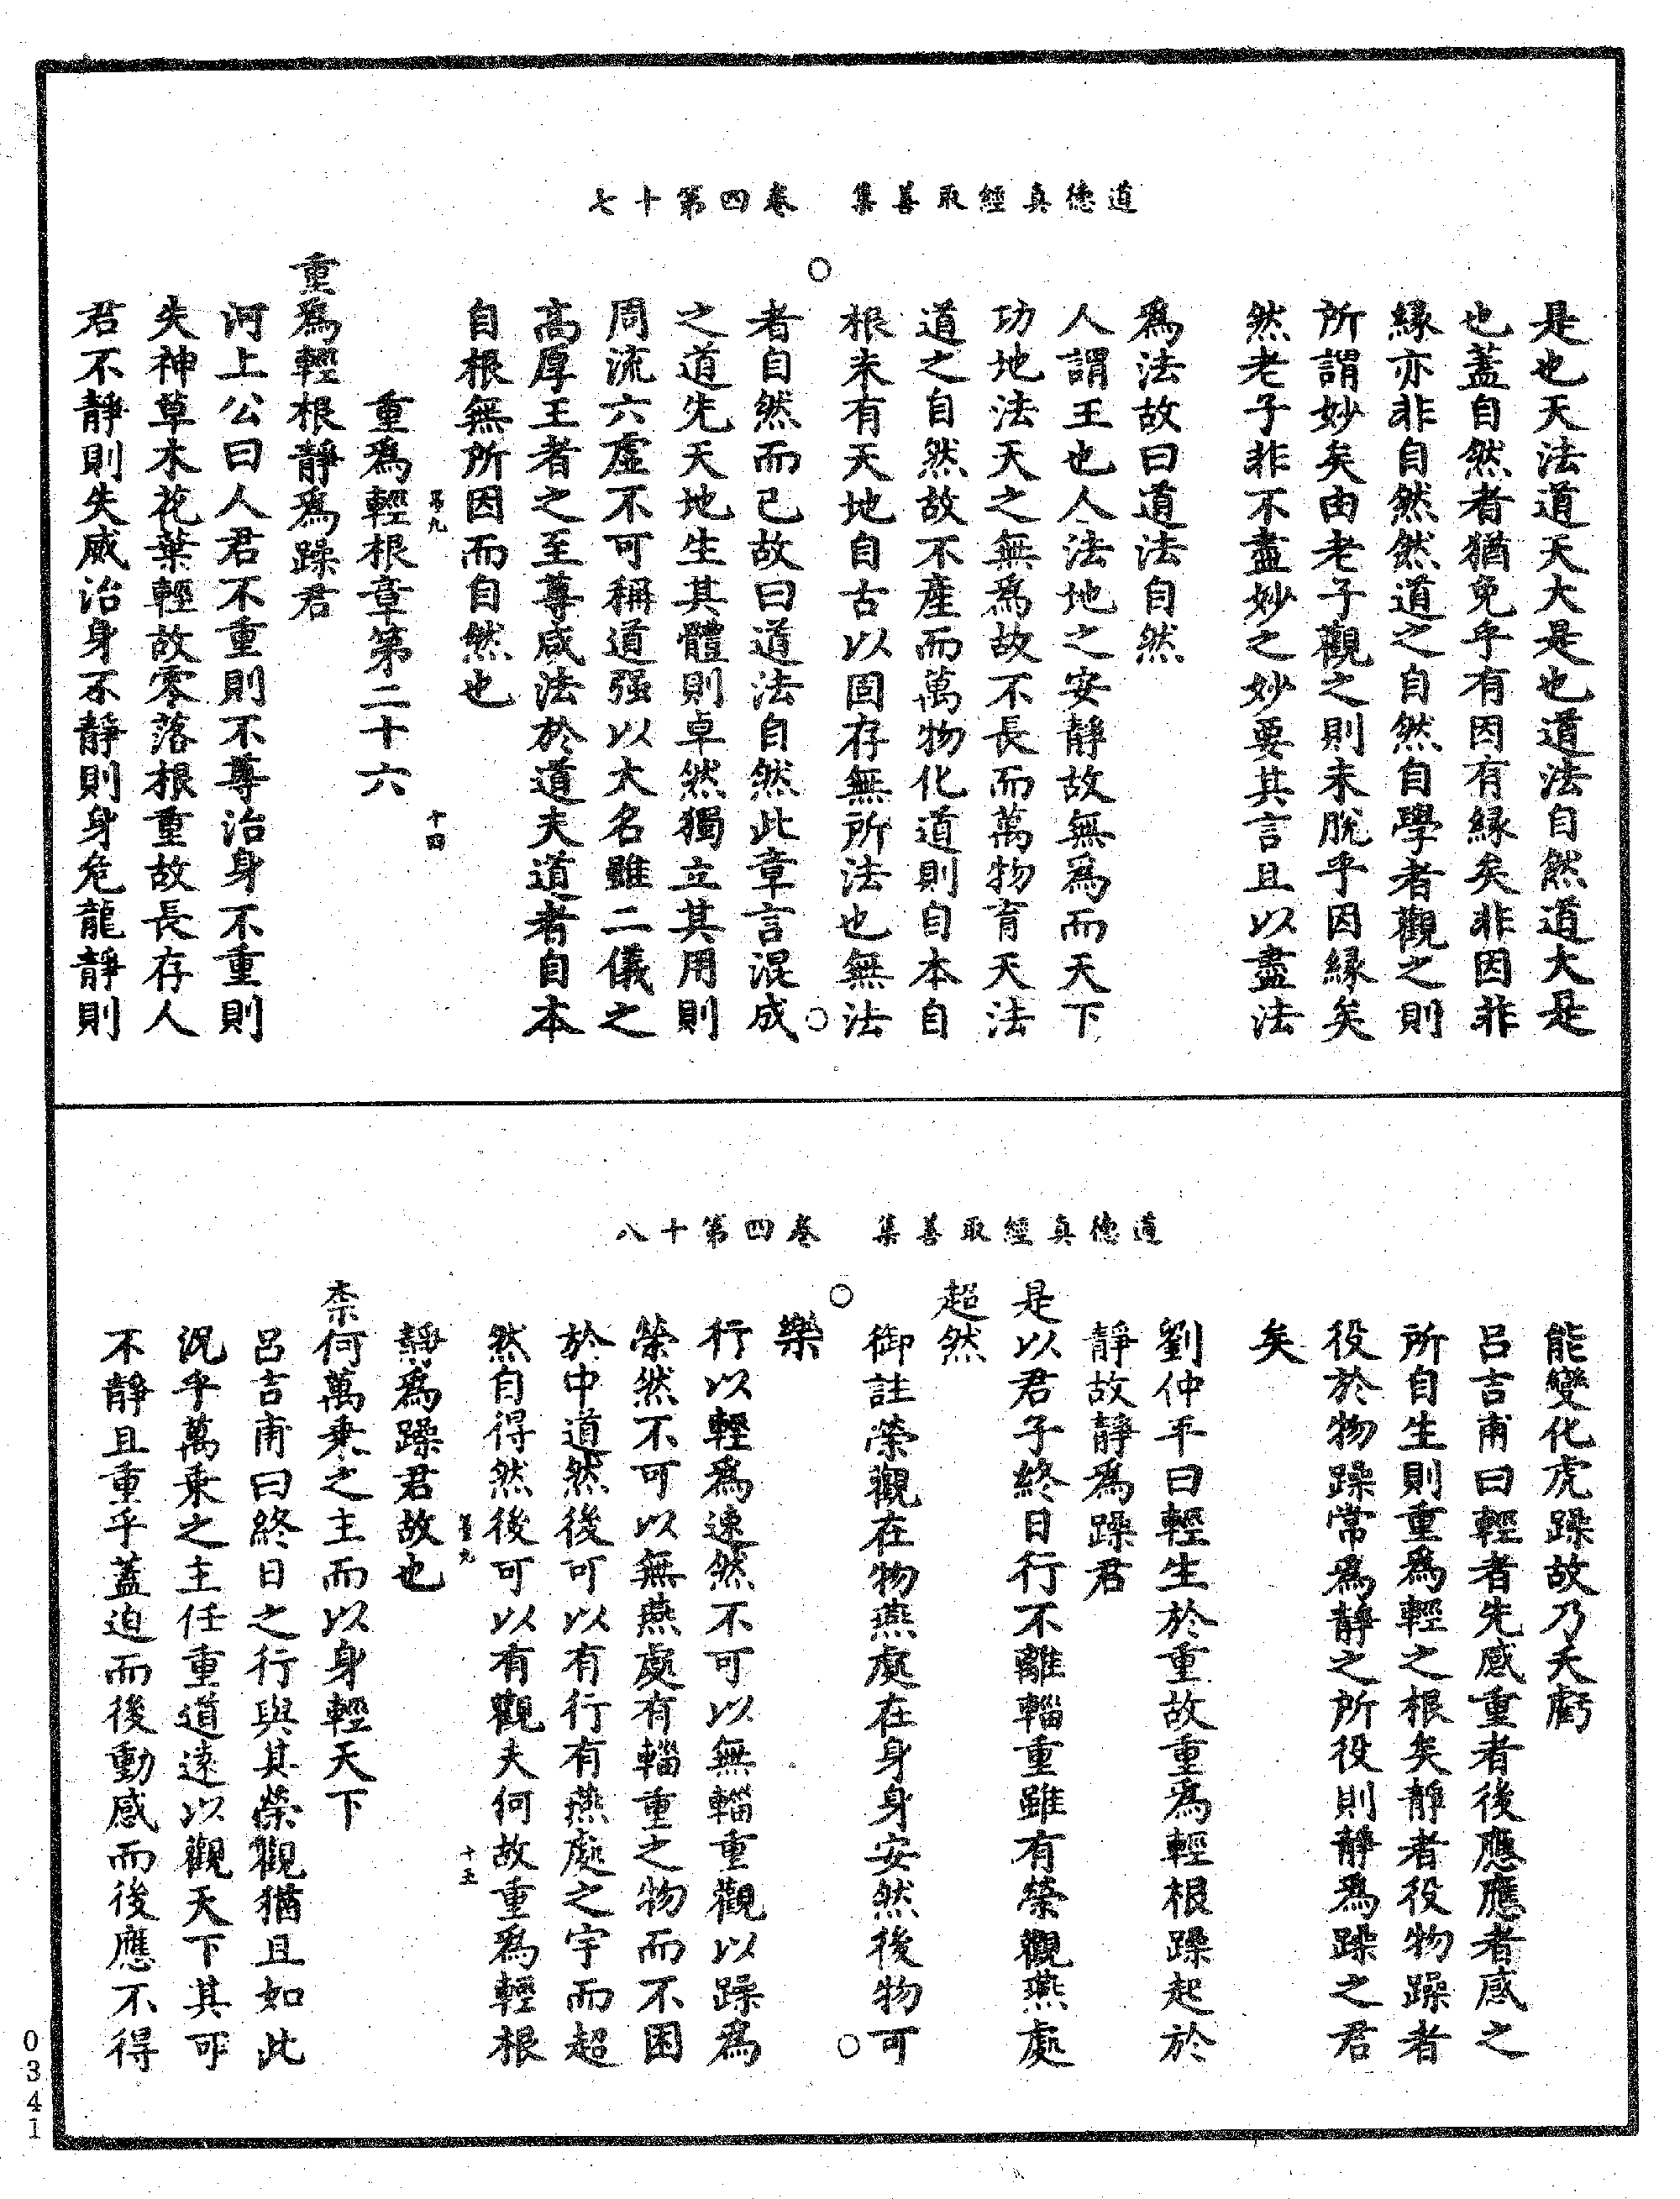 道德真經取善集　卷四第十七
是也天法道天大是也道法自然道大是
也蓋自然者猶免乎有因有緣矣非因非
緣亦非自然然道之自然自學者觀之則
所謂妙矣由老子觀之則未脫乎因緣矣
然老子非不盡妙之妙要其言且以盡法
爲法故曰道法自然
人謂王也人法地之安靜故無爲而天下
功地法天之無爲故不長而萬物育天法
道之自然故不產而萬物化道則自本自
根未有天地自古以固存無所法也無法
者自然而已故曰道法自然此章言混成
之道先天地生其體則卓然獨立其用則
周流六虛不可稱道强以大名雖二儀之
高厚王者之至尊咸法於道夫道者自本
自根無所因而自然也
十四
重爲輕根章第二十六
重爲輕根靜爲躁君
河上公曰人君不重則不尊治身不重則
失神草木花葉輕故零落根重故長存人
君不靜則失威治身不靜則身危龍靜則
道德真經取善集　卷四第十八
能變化虎躁故乃夭虧
呂吉甫曰輕者先感重者後應應者感之
所自生則重爲輕之根矣靜者役物躁者
役於物躁常爲靜之所役則靜爲躁之君
矣
劉仲平曰輕生於重故重爲輕根躁起於
靜故靜爲躁君
是以君子終日行不離輜重雖有榮觀燕處
超然
御註榮觀在物燕處在身身安然後物可
樂
行以輕爲速然不可以無輜重觀以躁爲
榮然不可以無燕處有輜重之物而不困
於中道然後可以有行有燕處之宇而超
然自得然後可以有觀夫何故重爲輕根
十五
靜爲躁君故也
柰何萬乗之主而以身輕天下
呂吉甫曰終日之行與其榮觀猶且如此
況乎萬乗之主任重道遠以觀天下其可
不靜且重乎蓋迫而後動感而後應不得
0341